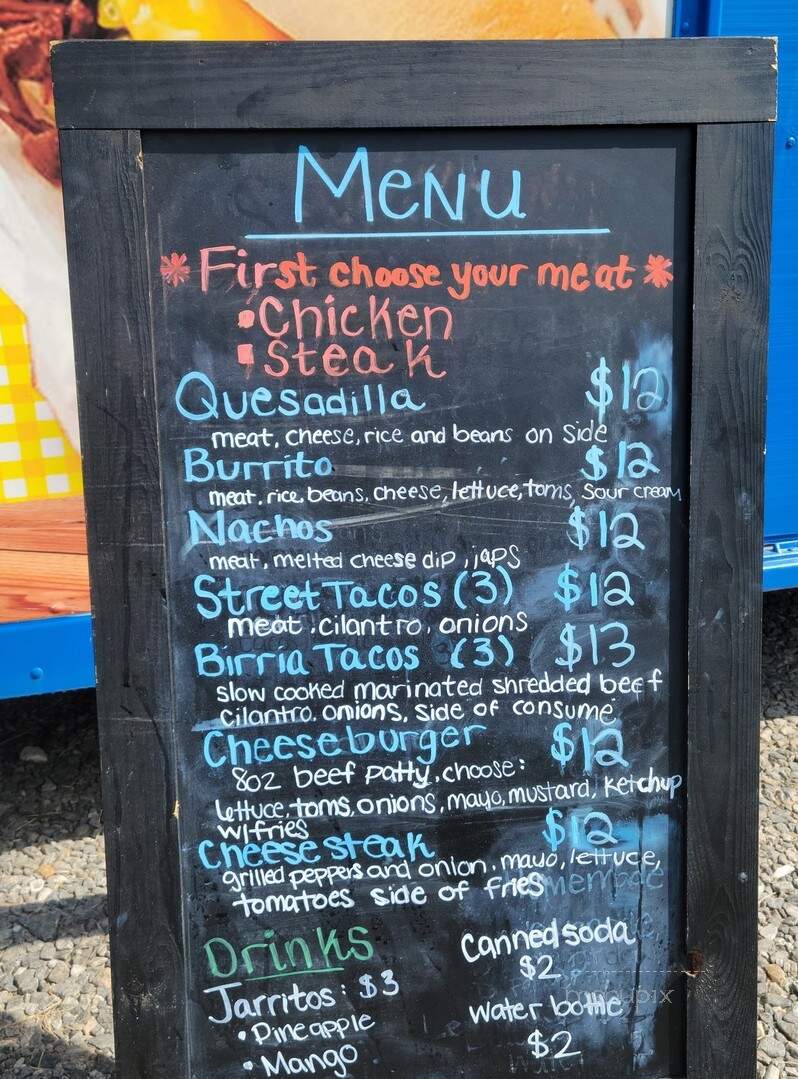 Menu
* First choose your meat *
• Chicken
• Steak
Quesadilla $12
meat, cheese, rice and beans on side
Burrito $12
meat, rice, beans, cheese, lettuce, toms, sour cream
Nachos $12
meat, melted cheese dip, japs
Street Tacos (3) $12
meat, cilantro, onions
Birria Tacos (3) $13
slow cooked marinated shredded beef
cilantro, onions, side of consumé
Cheeseburger $12
8oz beef patty, choose:
lettuce, toms, onions, mayo, mustard, ketchup
w/fries
Cheese steak $12
grilled peppers and onion, mayo, lettuce,
tomatoes side of fries
Drinks
Jarritos: $3
• Pineapple
• Mango
Canned soda
$2
water bottle
$2